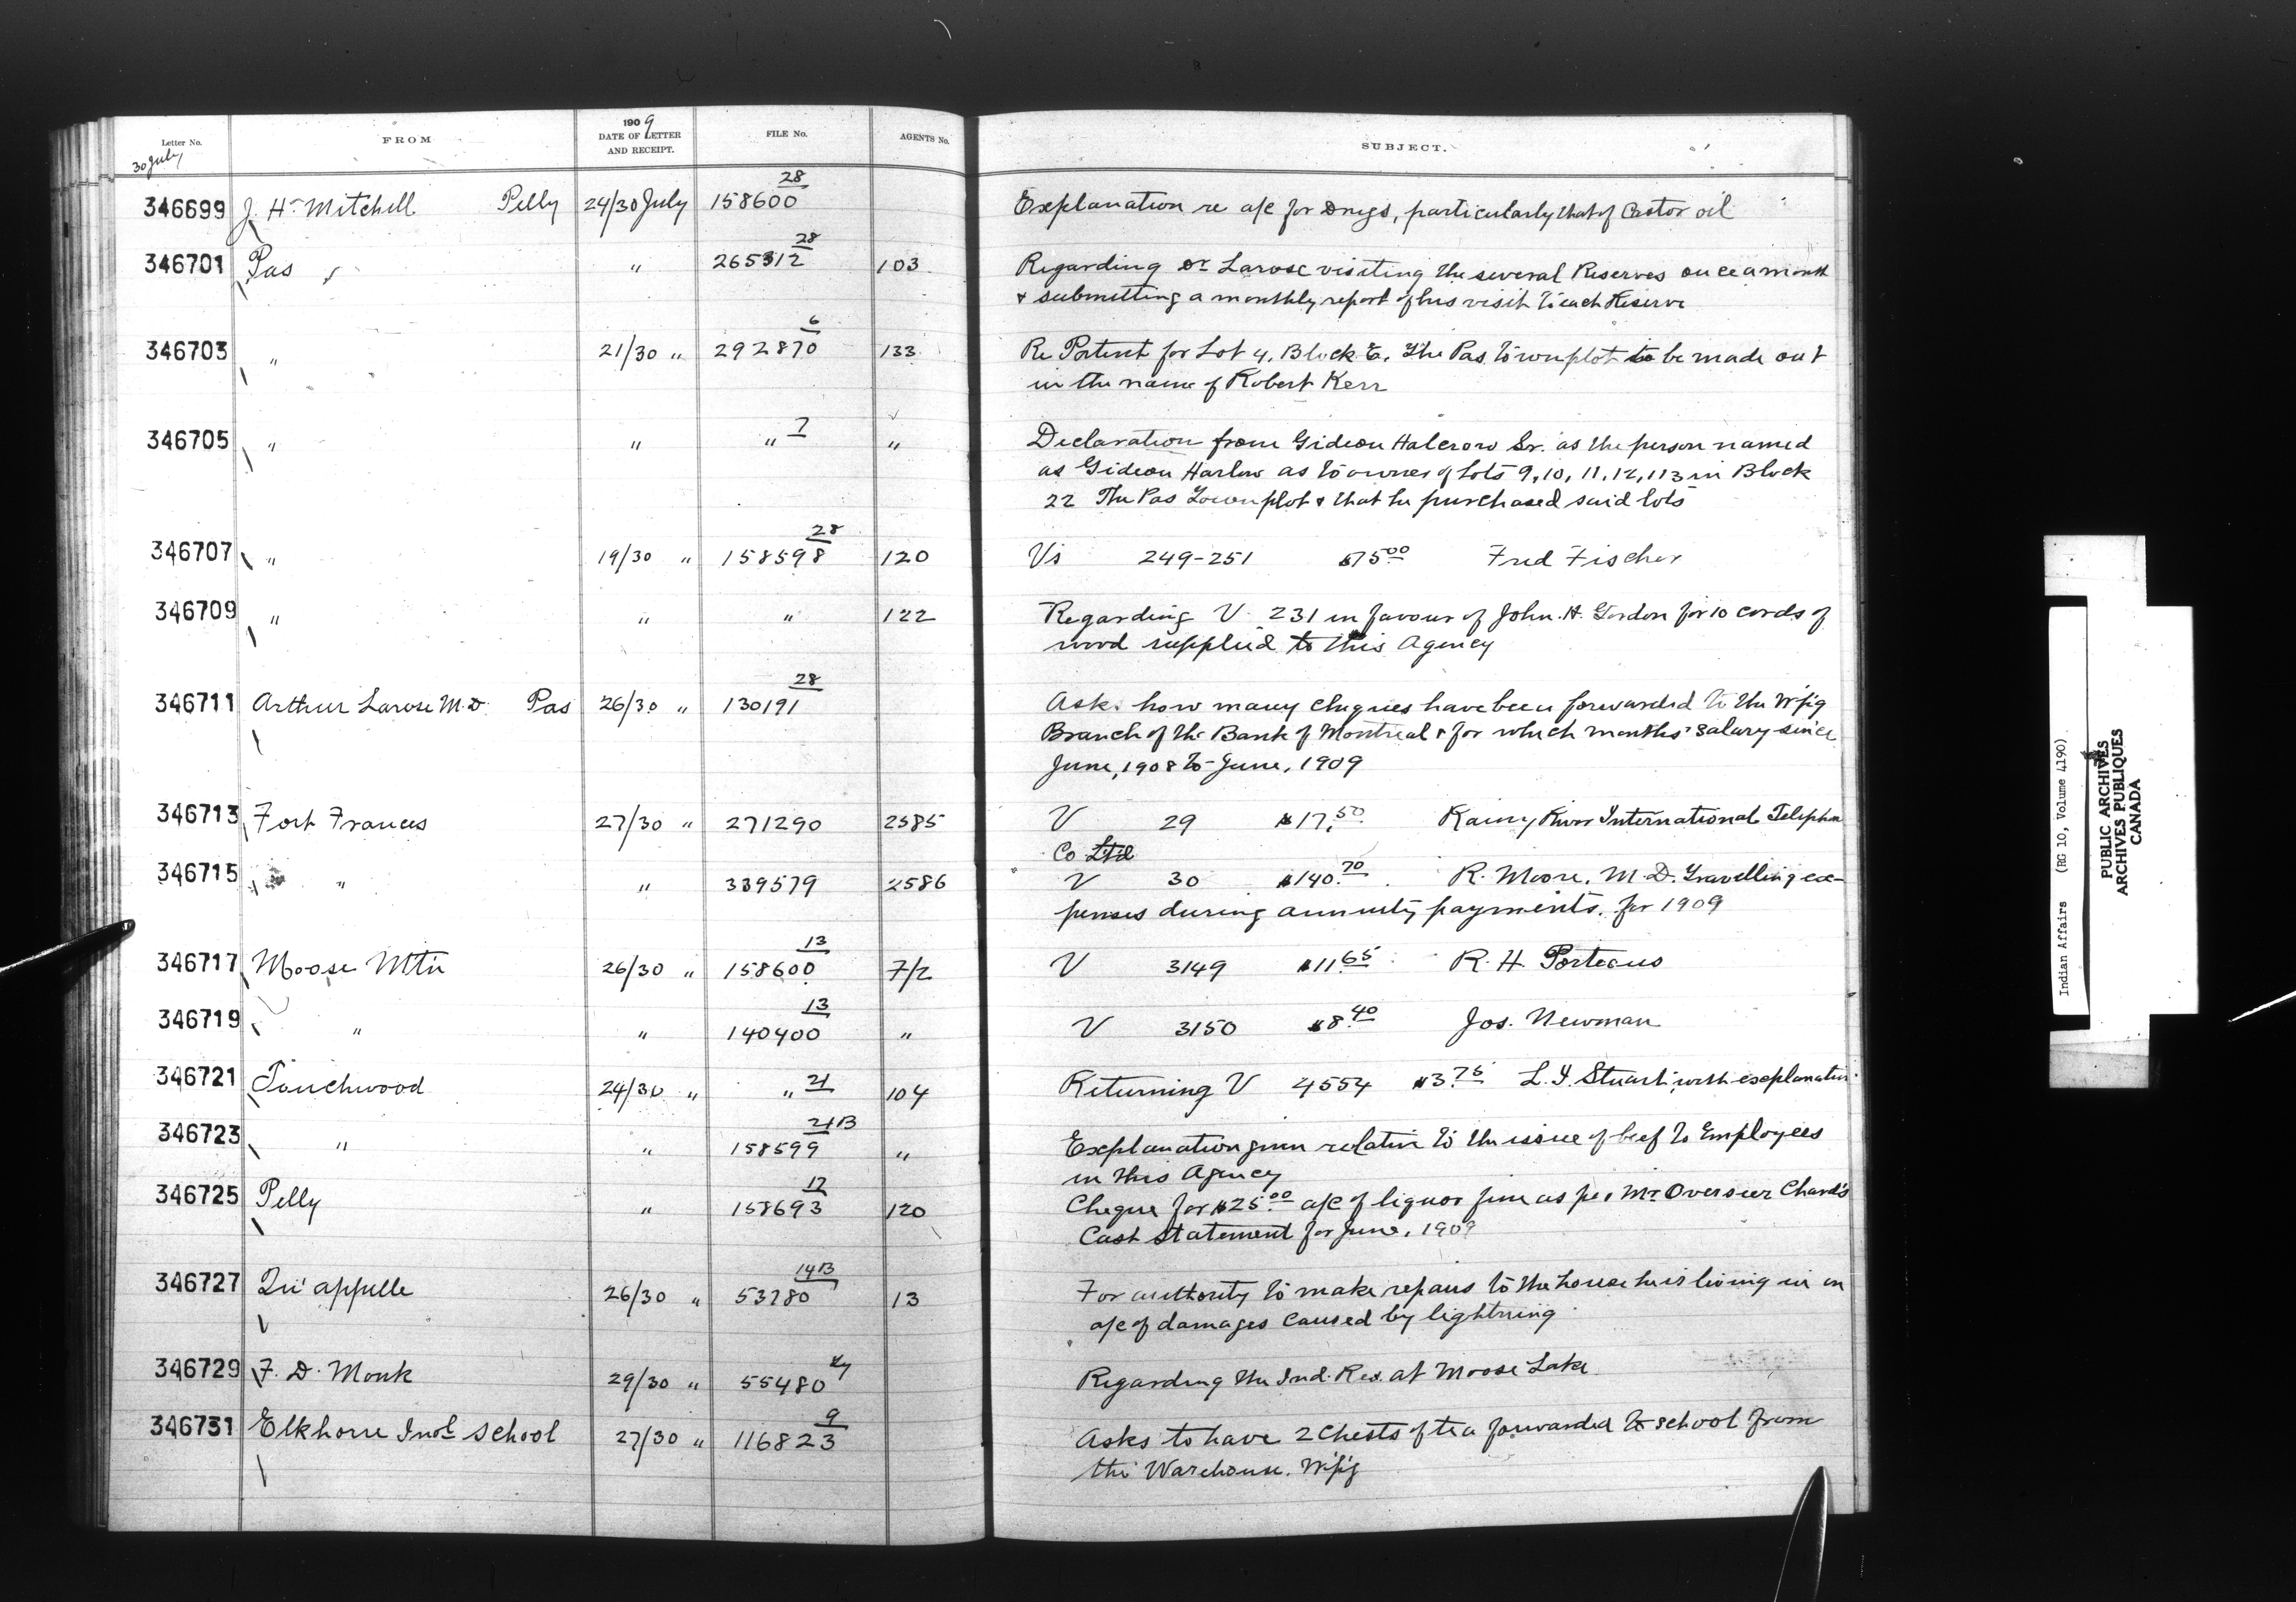 Letter No. FROM 1909 DATE OF LETTER AND RECEIPT. FILE No. AGENTS No. SUBJECT.
30 July
346699 J. H. Mitchell Pelly 24/30 July 158600 28 Explanation re a/c for Drugs, particularly that of Castor oil
346701 Pas " 265312 28 103 Regarding Dr Larose visiting the several Reserves once a month
& submitting a monthly report of his visit to each Reserve
346703 " 21/30 " 292870 6 133 Re Patent for Lot 4, Block E. The Pas Townplot to be made out
in the name of Robert Kerr
346705 " " " 7 " Declaration from Gideon Halcrow Sr. as the person named
as Gideon Harlow as to owner of Lots 9, 10, 11, 12, 113 in Block
22 The Pas Townplot & that he purchased said lots
346707 " 19/30 " 158598 28 120 Vs 249-251 $75.00 Fred Fischer
346709 " " " 122 Regarding V 231 in favour of John. H. Gordon for 10 cords of
wood supplied to this Agency
346711 Arthur Larose M.D. Pas 26/30 " 130191 28 Asks how many cheques have been forwarded to the W'p'g
Branch of the Bank of Montreal & for which months' salary since
June, 1908 to June, 1909
346713 Fort Frances 27/30 " 271290 2585 V 29 $17.50 Rainy River International Telephone
Co Ltd
346715 " " 339579 2586 V 30 $140.70 R. Moore, M.D. Travelling ex-
penses during annuity payments, for 1909
346717 Moose Mtn 26/30 " 158600 13 7/2 V 3149 $11.65 R. H. Porteous
346719 " " 140400 13 " V 3150 $8.40 Jos. Newman
346721 Touchwood 24/30 " " 21 104 Returning V 4554 $3.75 L. Y. Stuart, with explanation
346723 " " 158599 21B " Explanation given relative to the issue of beef to Employees
in this Agency
346725 Pelly " 158693 12 120 Cheque for $25.00 a/c of liquor fine as per Mr Overseer Chard's
Cash statement for June, 1909
346727 Qu'appelle 26/30 " 53780 14B 13 For authority to make repairs to the house he is living in on
a/c of damages caused by lightning
346729 F. D. Monk 29/30 " 55480 Regarding the Ind. Res. at Moose Lake
346731 Elkhorn Indl School 27/30 " 116823 9 Asks to have 2 Chests of tea forwarded to school from
the Warehouse, W'p'g
Indian Affairs (RG 10, Volume 4190)
PUBLIC ARCHIVES
ARCHIVES PUBLIQUES
CANADA